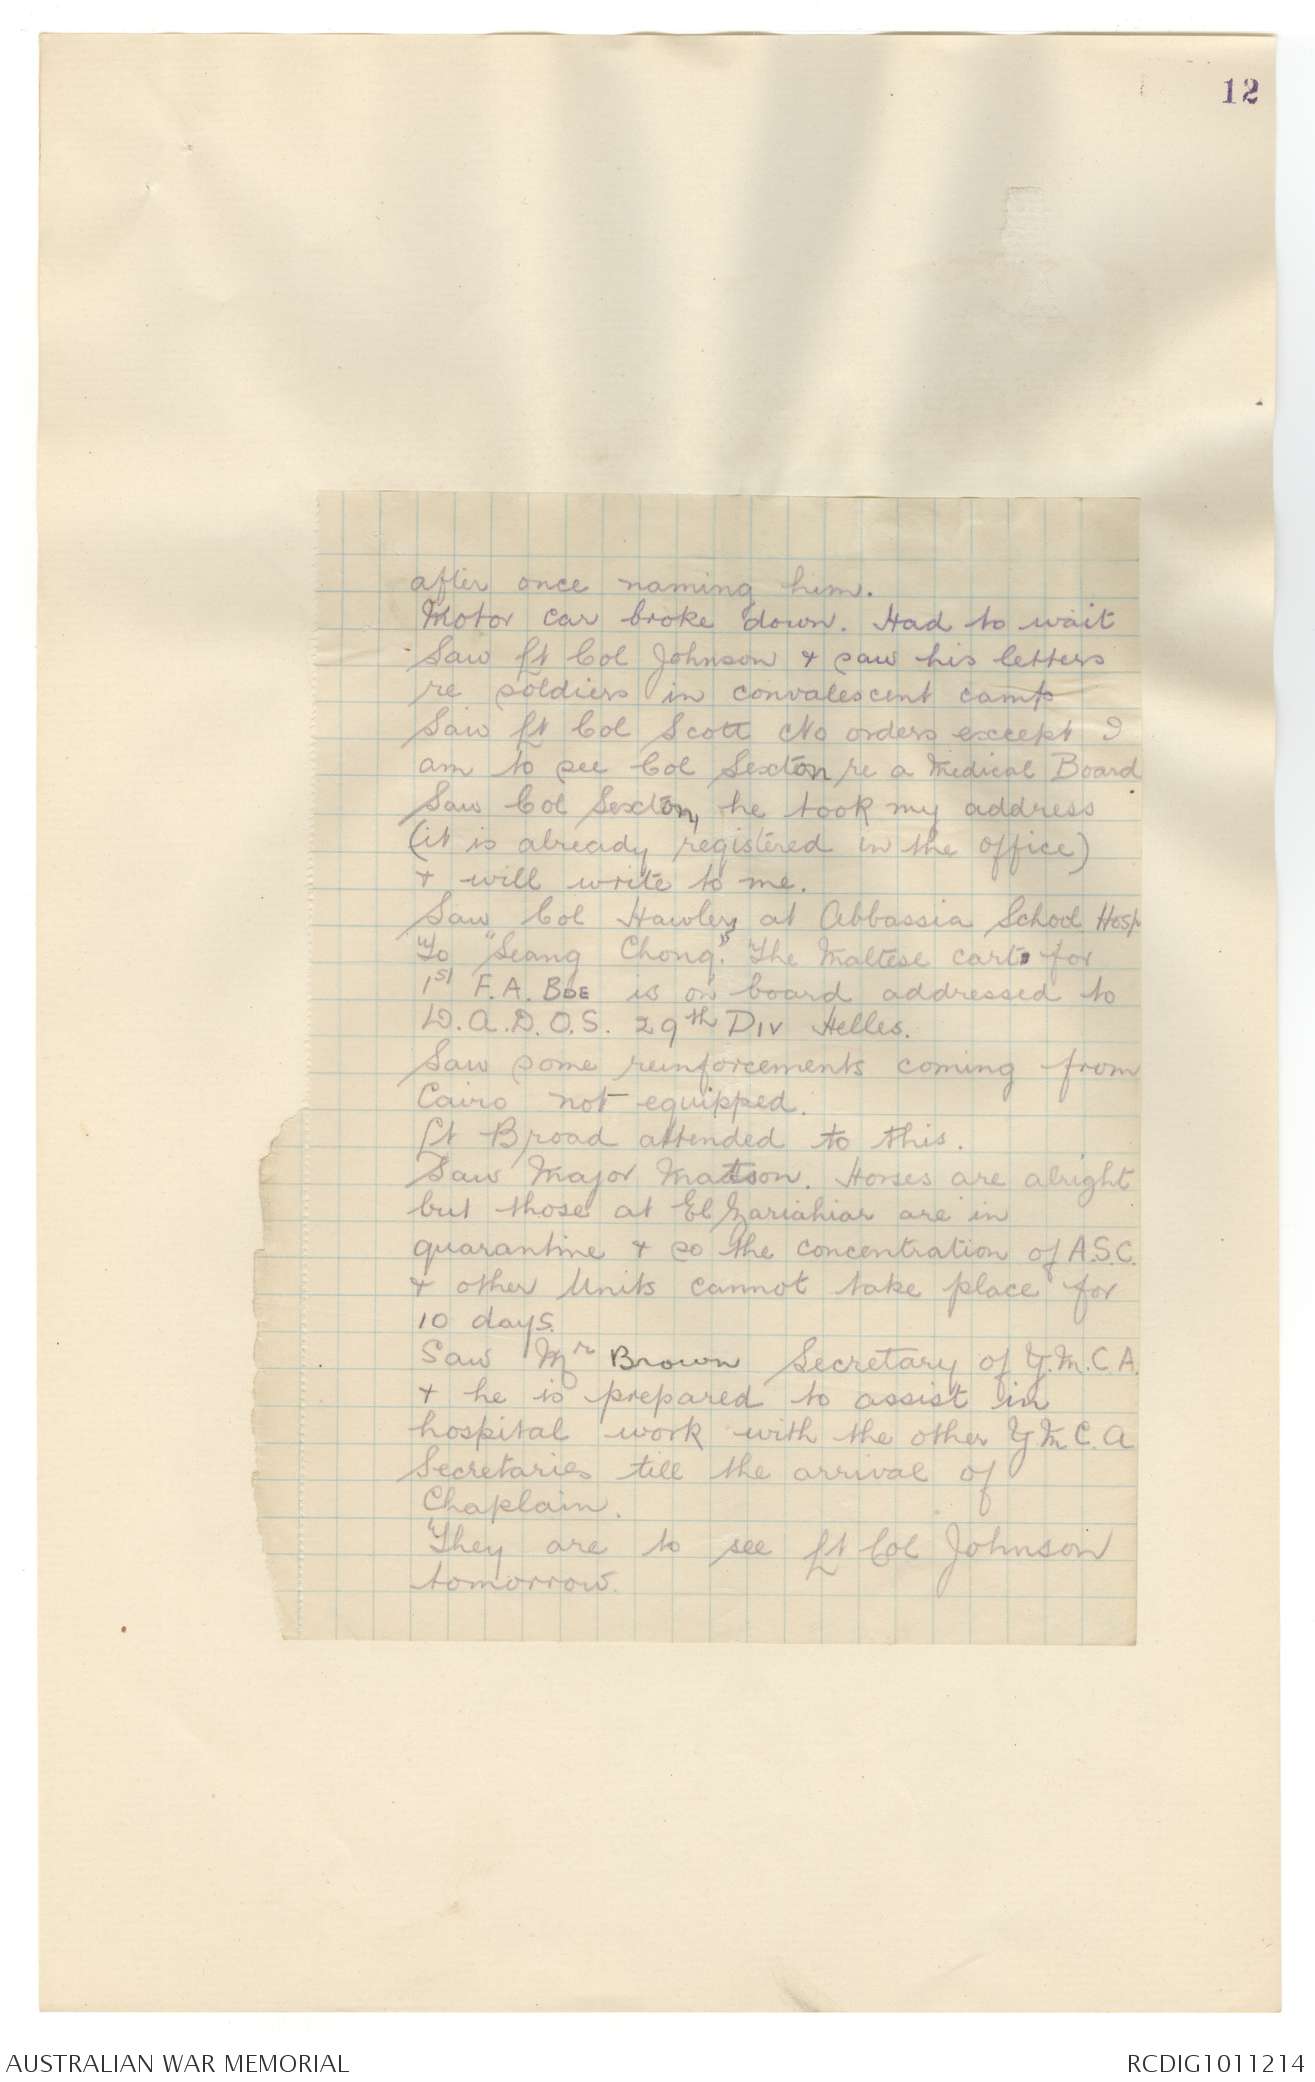 12
after once naming him.
Motor car broke down. Had to wait
Saw Lt Col Johnson & saw his letters
re soldiers in convalescent camp
Saw Lt Col Scott No orders except I
am to see Col Sexton re a Medical Board
Saw Col Sexton, he took my address
(it is already registered in the office)
& will write to me.
Saw Col Hawley at Abbassia School Hosp
To "Seang Chong". The Maltese cart for
1st F.A. BDE is on board addressed to
D.A.D.O.S. 29th DIV Helles.
Saw some reinforcements coming from
Cairo not equipped.
Lt Broad attended to this.
Saw Major Mattson. Horses are alright
but those at El are in
quarantine & so the concentration of A.S.C.
& other Units cannot take place for
10 days.
Saw Mr Brown Secretary of Y.M.C.A.
& he is prepared to assist in
hospital work with the other Y.M.C.A
Secretaries till the arrival of
Chaplain.
They are to see Lt Col Johnson
tomorrow.
AUSTRALIAN WAR MEMORIAL
RCDIG1011214